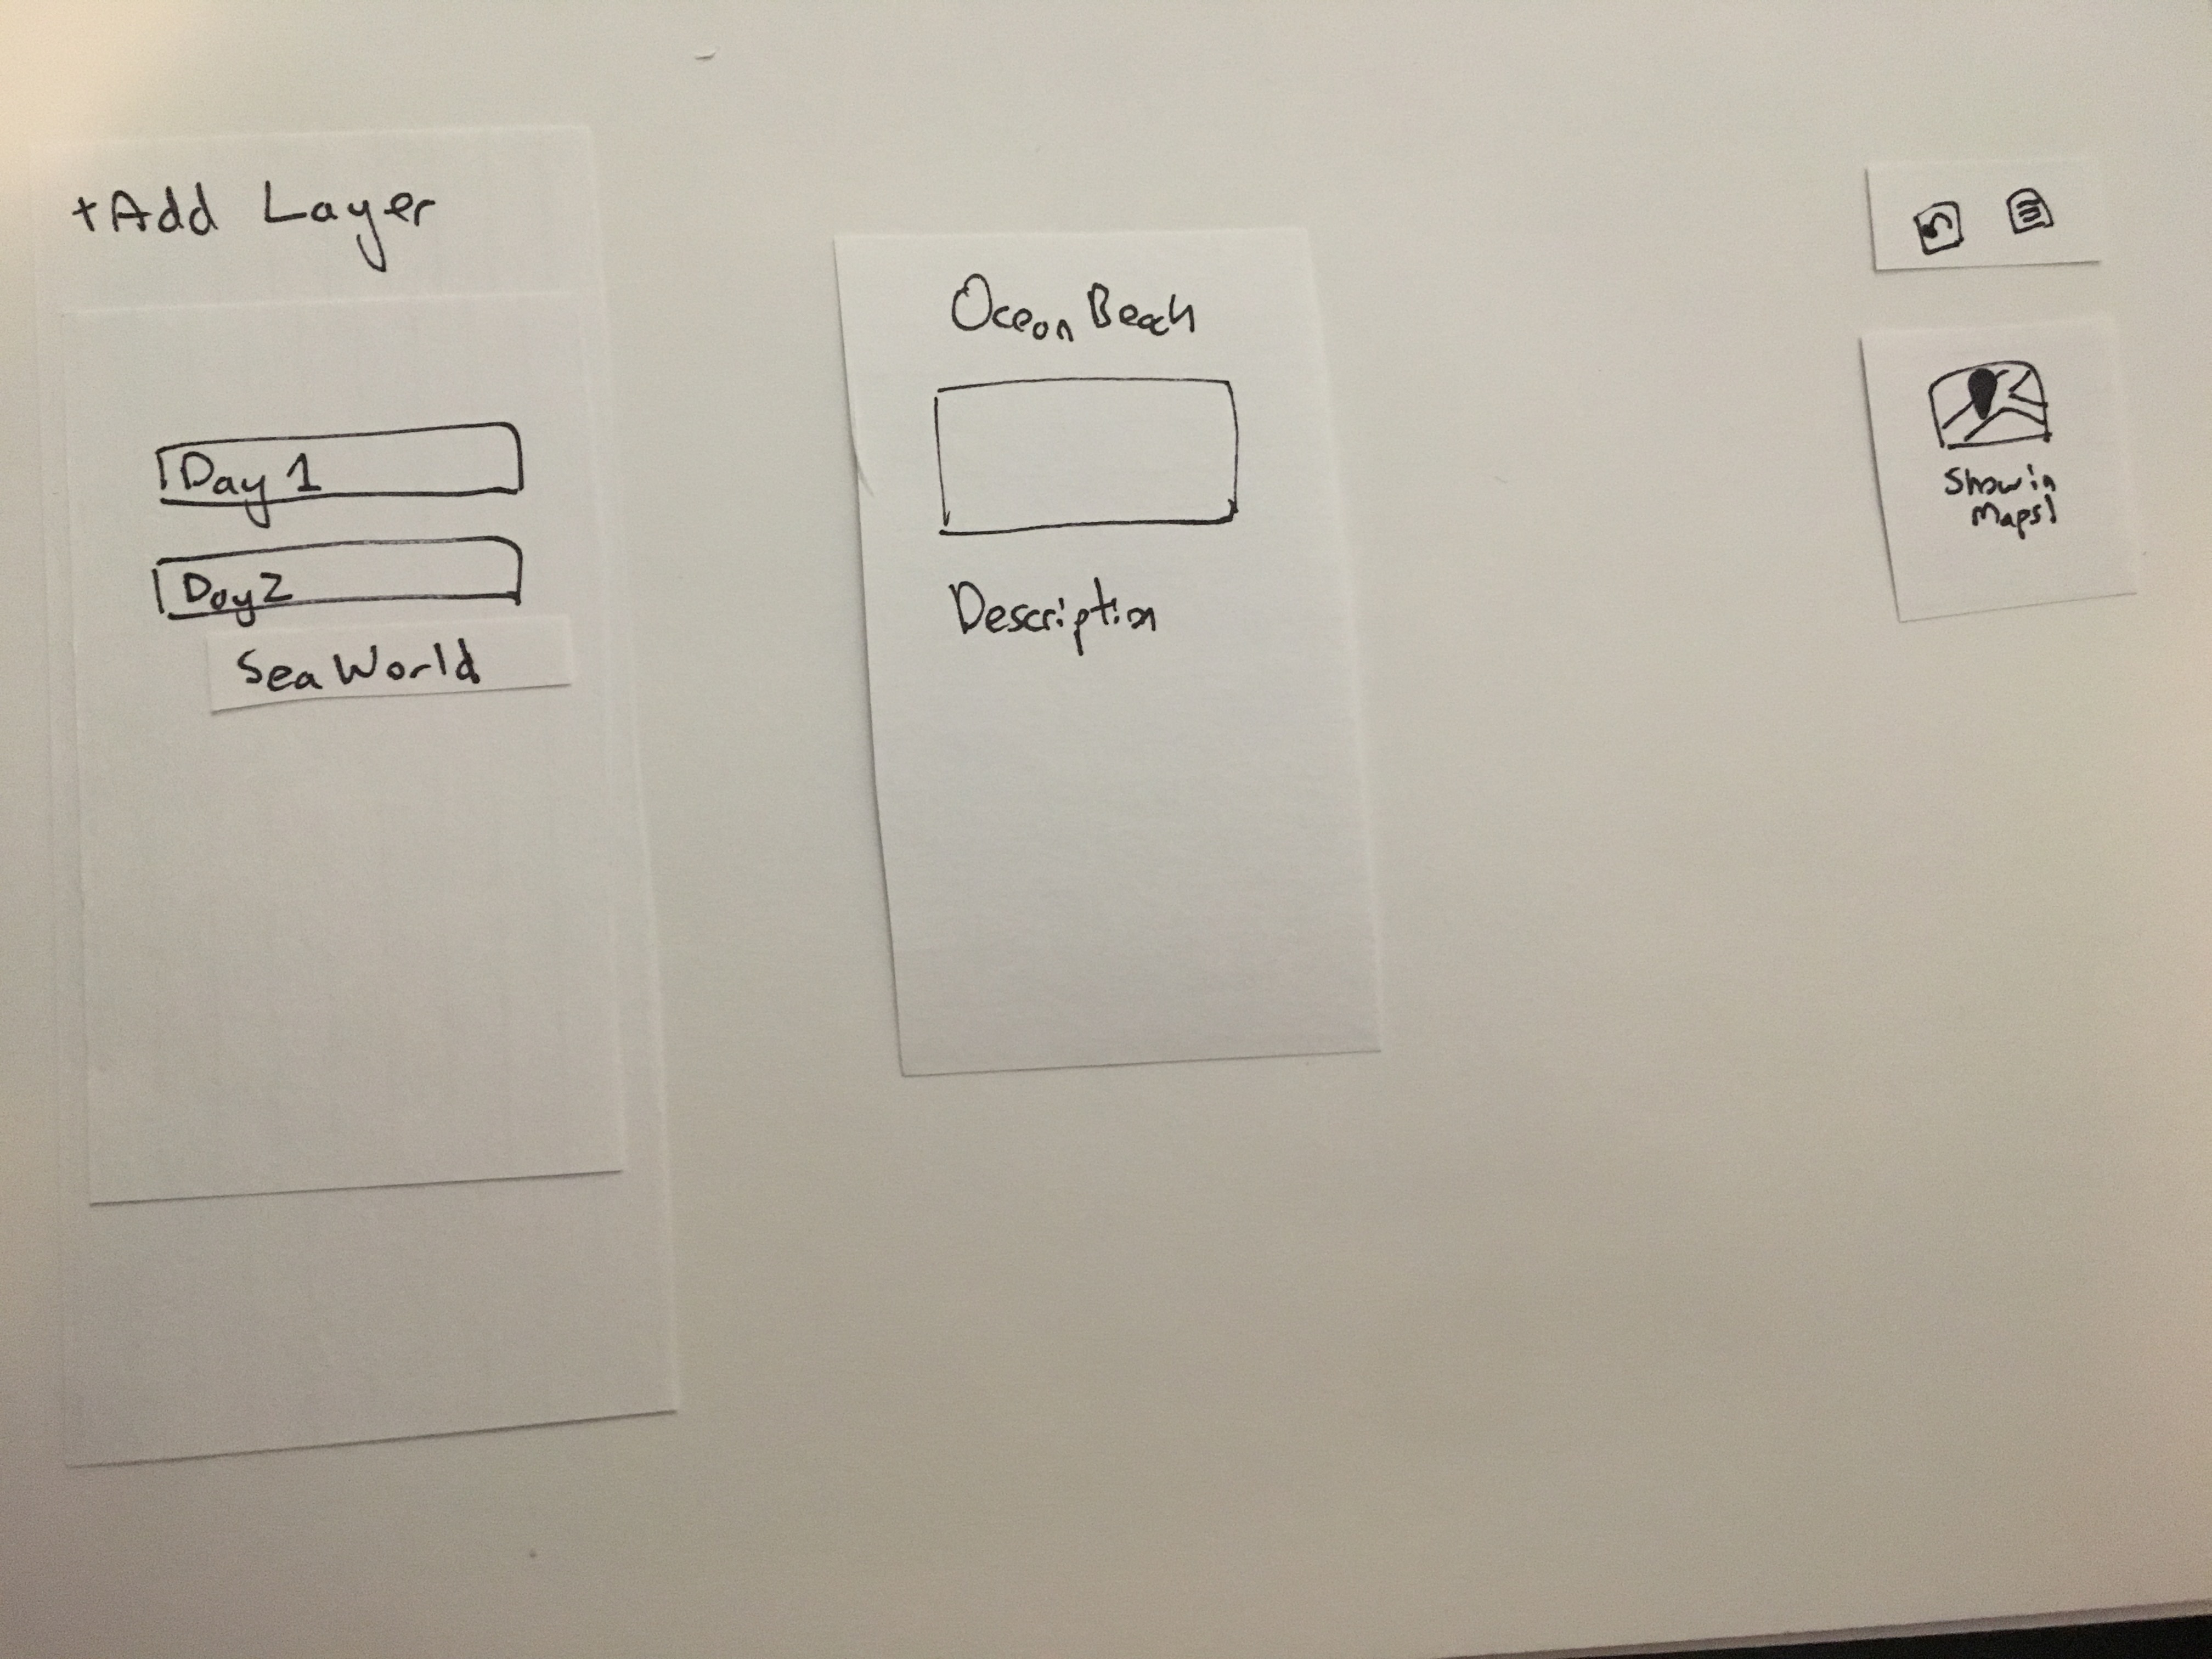 +Add Layer
Day 1
Day 2
Sea World
Ocean Beach
Description
Show in
Maps!